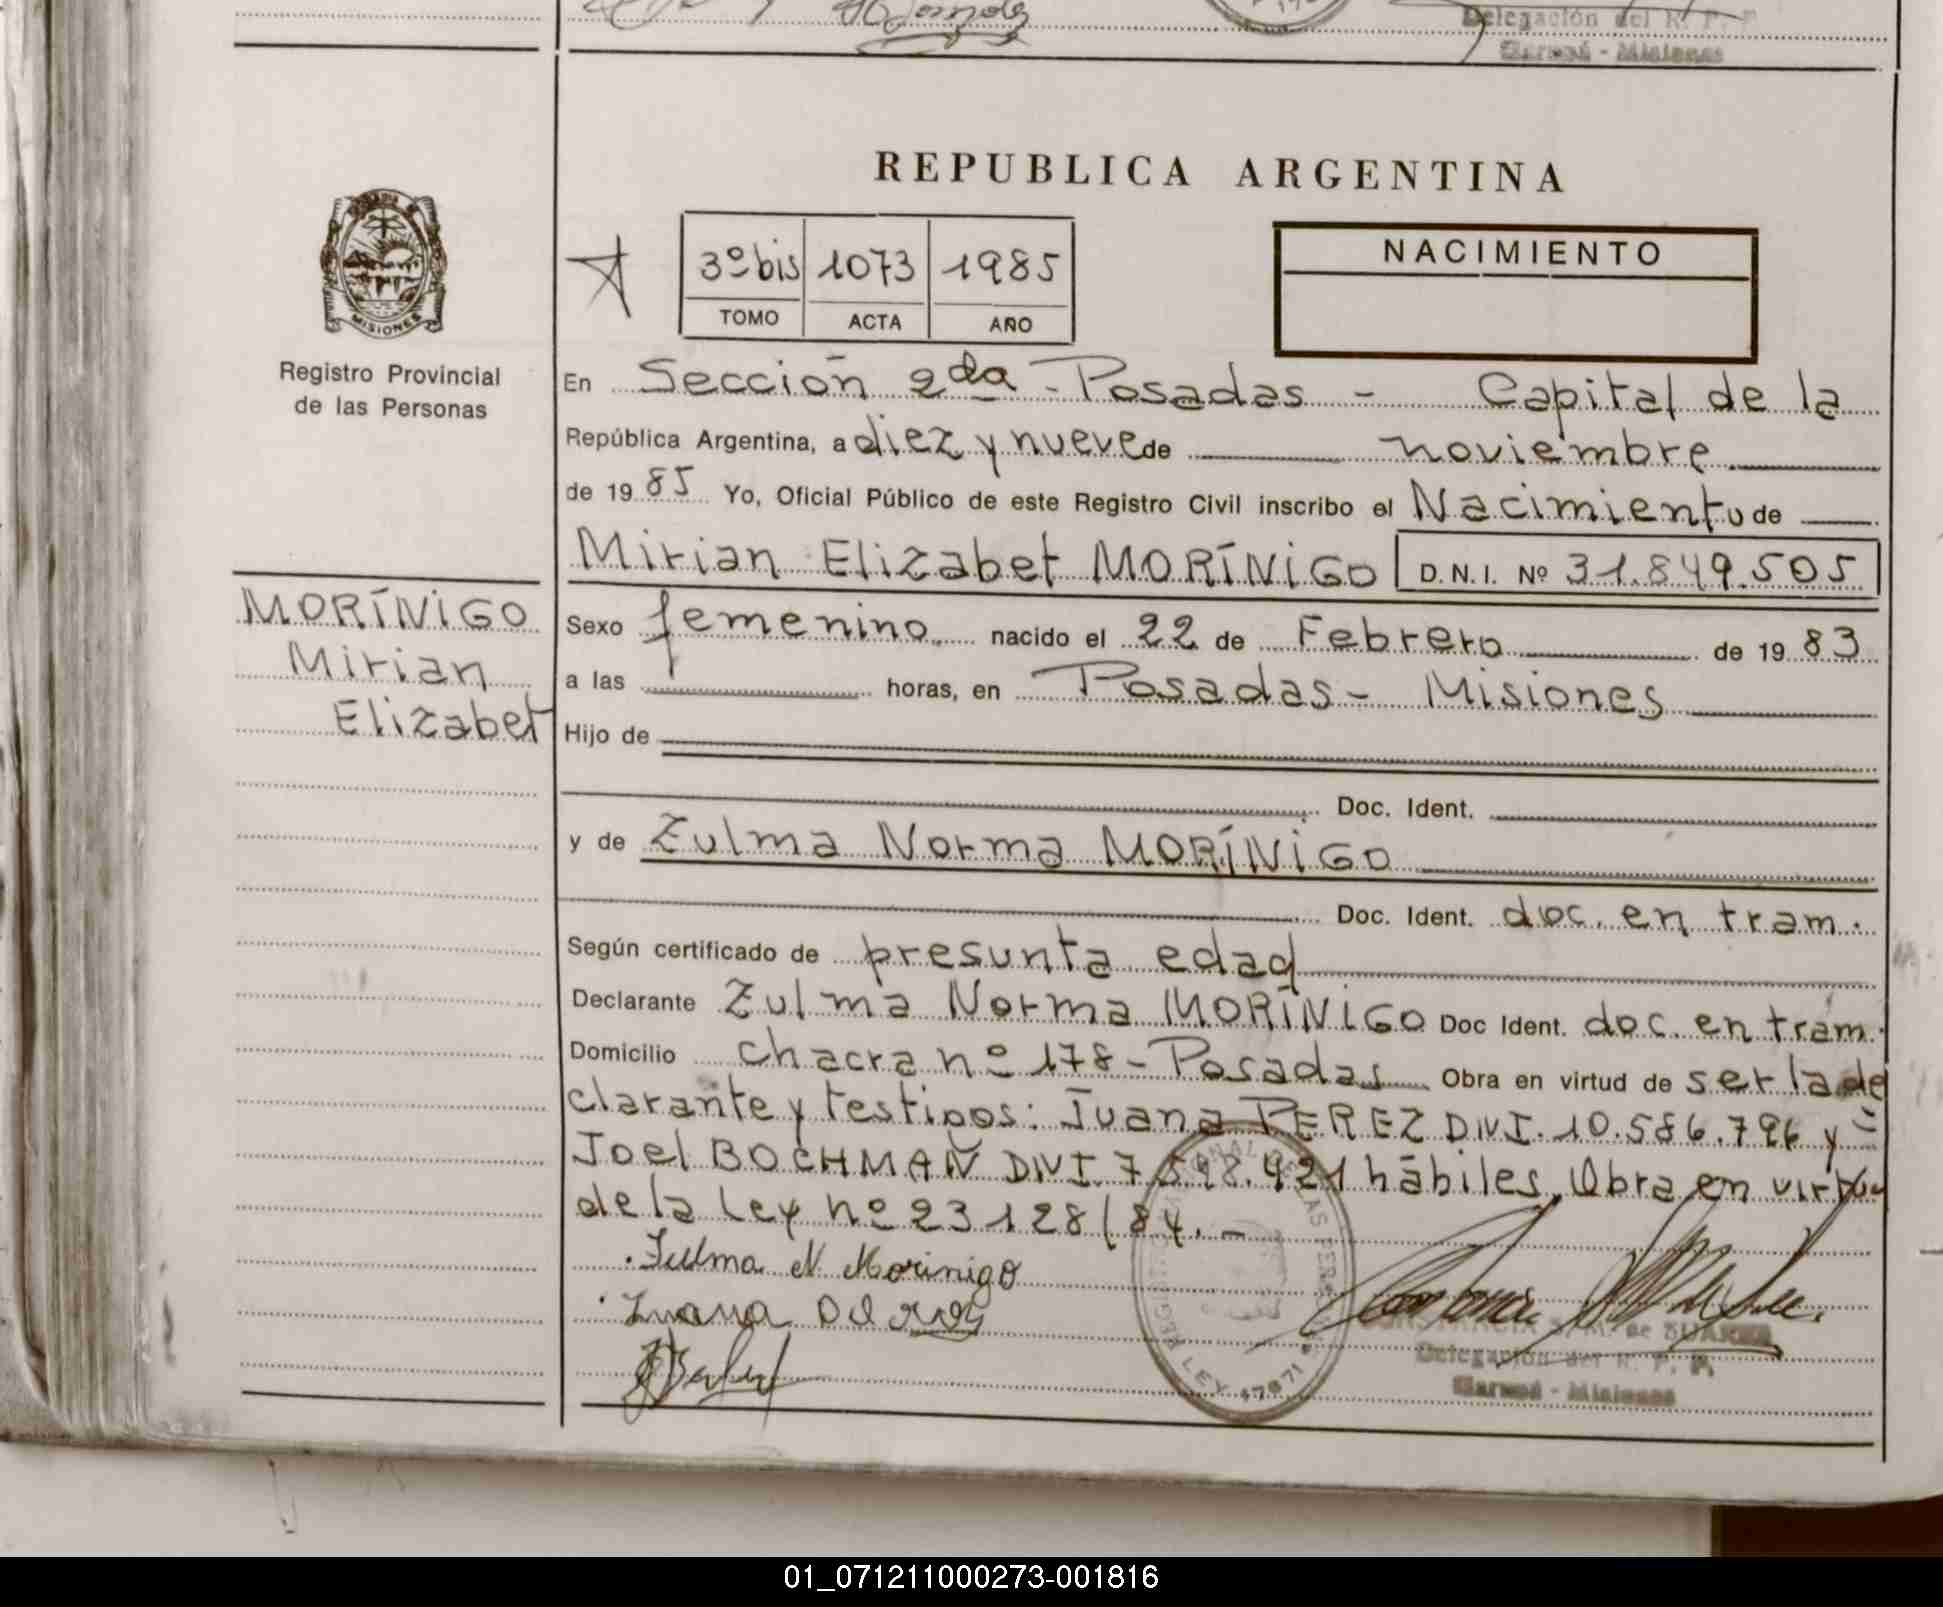 Delegación del R. P. P.
Garupá - Misiones
REPUBLICA ARGENTINA
3º bis 1073 1985
TOMO ACTA AÑO
NACIMIENTO
MISIONES
Registro Provincial
de las Personas
En Sección 2da - Posadas - Capital de la
República Argentina, a diez y nueve de noviembre
de 19 85 Yo, Oficial Público de este Registro Civil inscribo el Nacimiento de
Mirian Elizabet MORÍNIGO D.N.I. Nº 31.849.505
MORÍNIGO
Mirian
Elizabet
Sexo femenino nacido el 22 de Febrero de 19 83
a las horas, en Posadas - Misiones
Hijo de
Doc. Ident.
y de Zulma Norma MORÍNIGO
Doc. Ident. doc. en tram.
Según certificado de presunta edad
Declarante Zulma Norma MORÍNIGO Doc Ident. doc. en tram.
Domicilio chacra nº 178 - Posadas Obra en virtud de ser la de
clarante y testigos: Juana PEREZ DNI. 10.586.796 y
Joel BOCHMAN DNI. 7.598.421 hábiles, Obra en virtud
de la Ley nº 23128/84.-
Zulma N Morinigo
Juana
CONSTANCIA S. M. de SUAREZ
Delegación del R. P. P.
Garupá - Misiones
LEY 17671
01_071211000273-001816